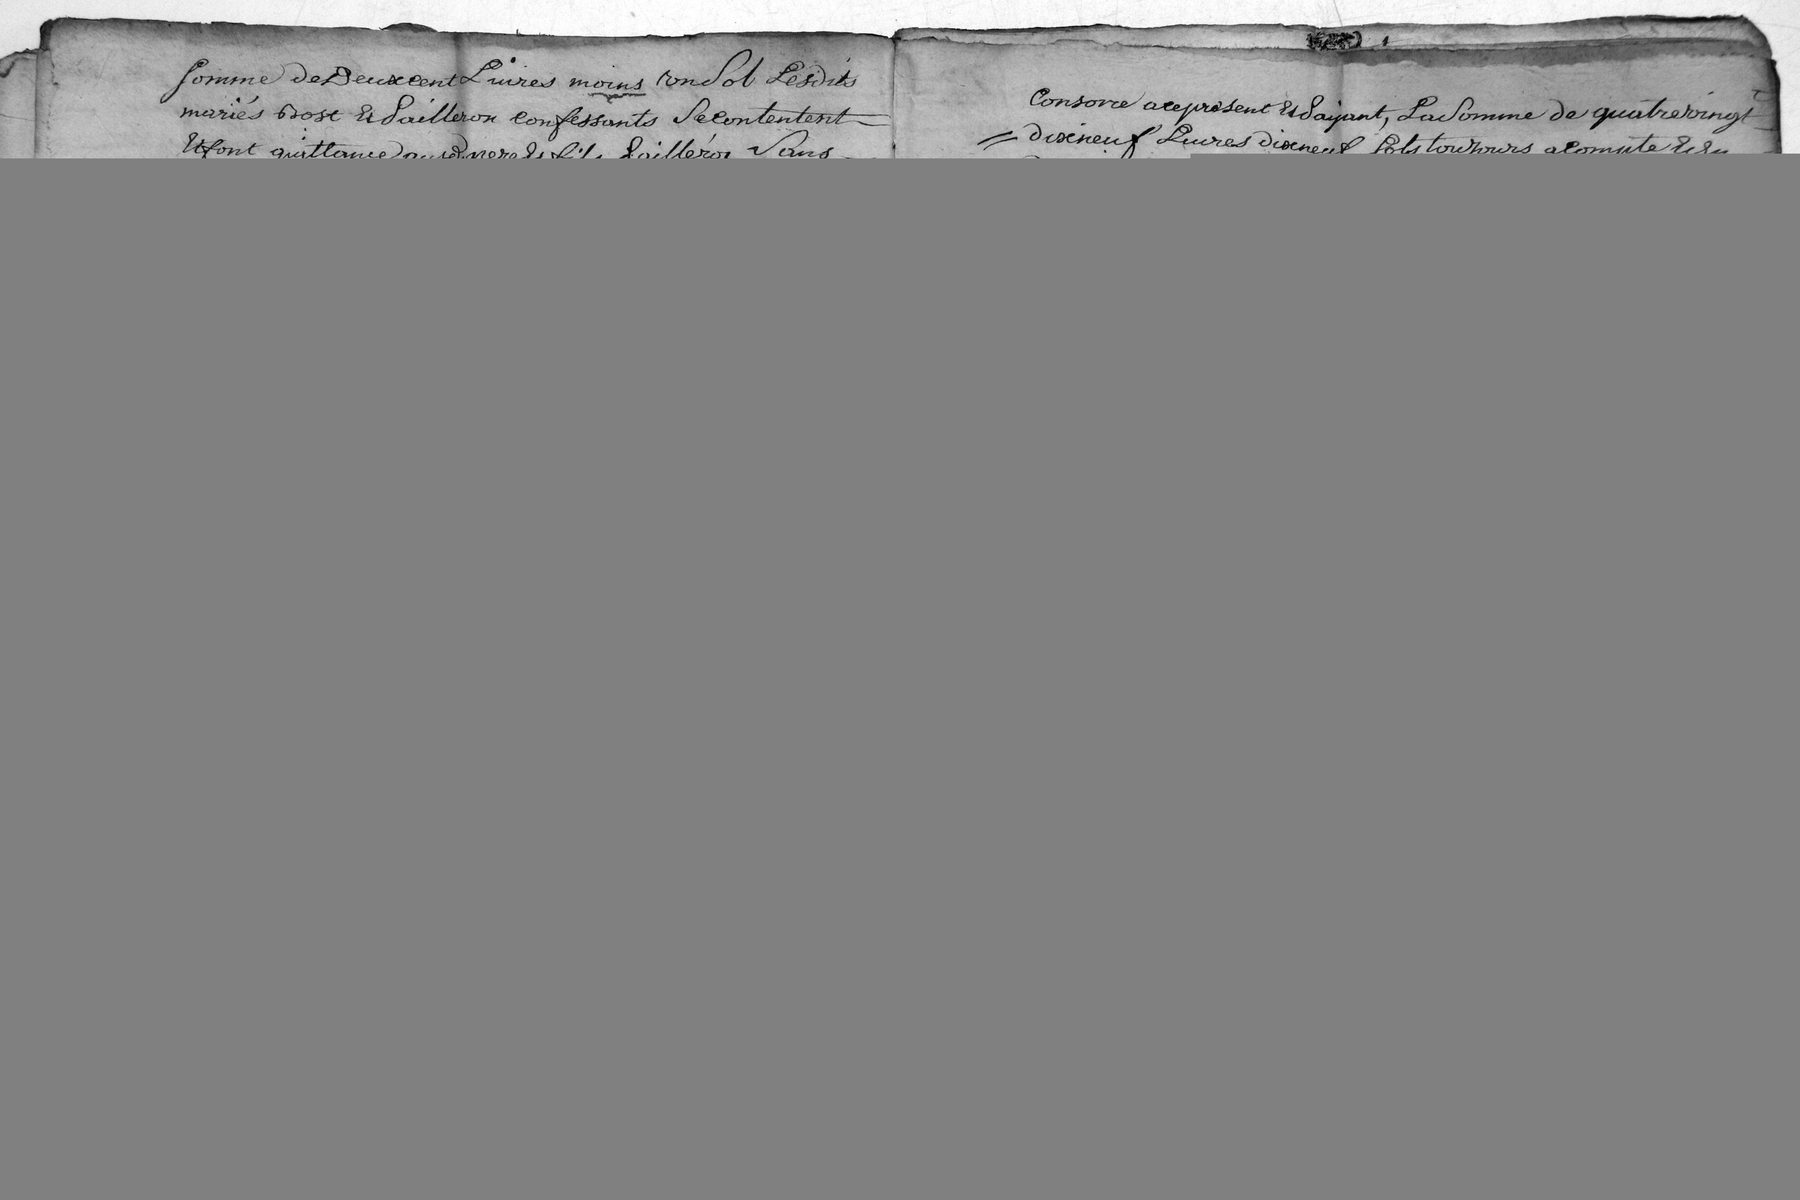 somme de Deux cent Livres moins un Sol Lesdits
mariés Bost et Sailleron confessants Se contentent
Et font quittance pere et fils Sailleron Sans
Consorce ace present et Saijant, La Somme de quatrevingt
dixneuf Livres dixneuf Sols tournois acompte